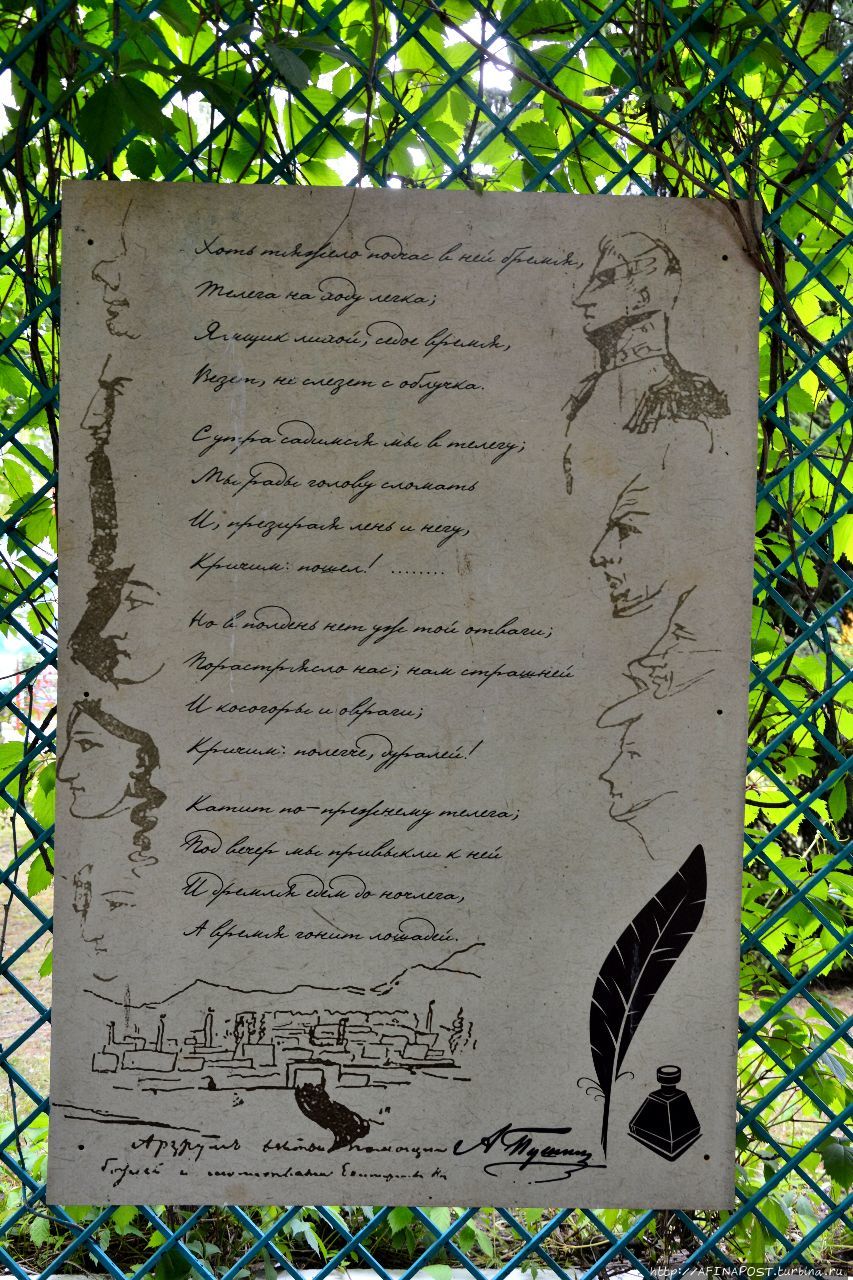 Хоть тяжело подчас в ней бремя,
Телега на ходу легка;
Ямщик лихой, седое время,
Везет, не слезет с облучка.
С утра садимся мы в телегу;
Мы рады голову сломать
И, презирая лень и негу,
Кричим: пошел! ........
Но в полдень нет уж той отваги;
Порастрясло нас; нам страшней
И косогоры и овраги;
Кричим: полегче, дуралей!
Катит по-прежнему телега;
Под вечер мы привыкли к ней
И дремля едем до ночлега,
А время гонит лошадей.
Арзрумъ помощии А Пушкин
и
http://AFINAPOST.turbina.ru